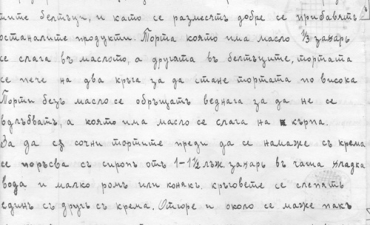 тите белтъци, и като се размесятъ добре се прибавятъ
останалите продукти. Торта която има масло ⅓ захаръ
се слага въ маслото, а другата въ белтъците, тортата
се пече на два кръга за да стане тортата по висока
Торти безъ масло се обръщатъ веднага за да не се
вдлъбватъ, а която има масло се слага на кърпа.
За да сѫ сочни тортите преди да се намаже съ крема
се поръсва съ сиропъ отъ 1-1½ лъж. захаръ въ чаша хладка
вода и малко ромъ или конякъ, кръговете се слепятъ
единъ съ другъ съ крема. Отгоре и около се маже пакъ